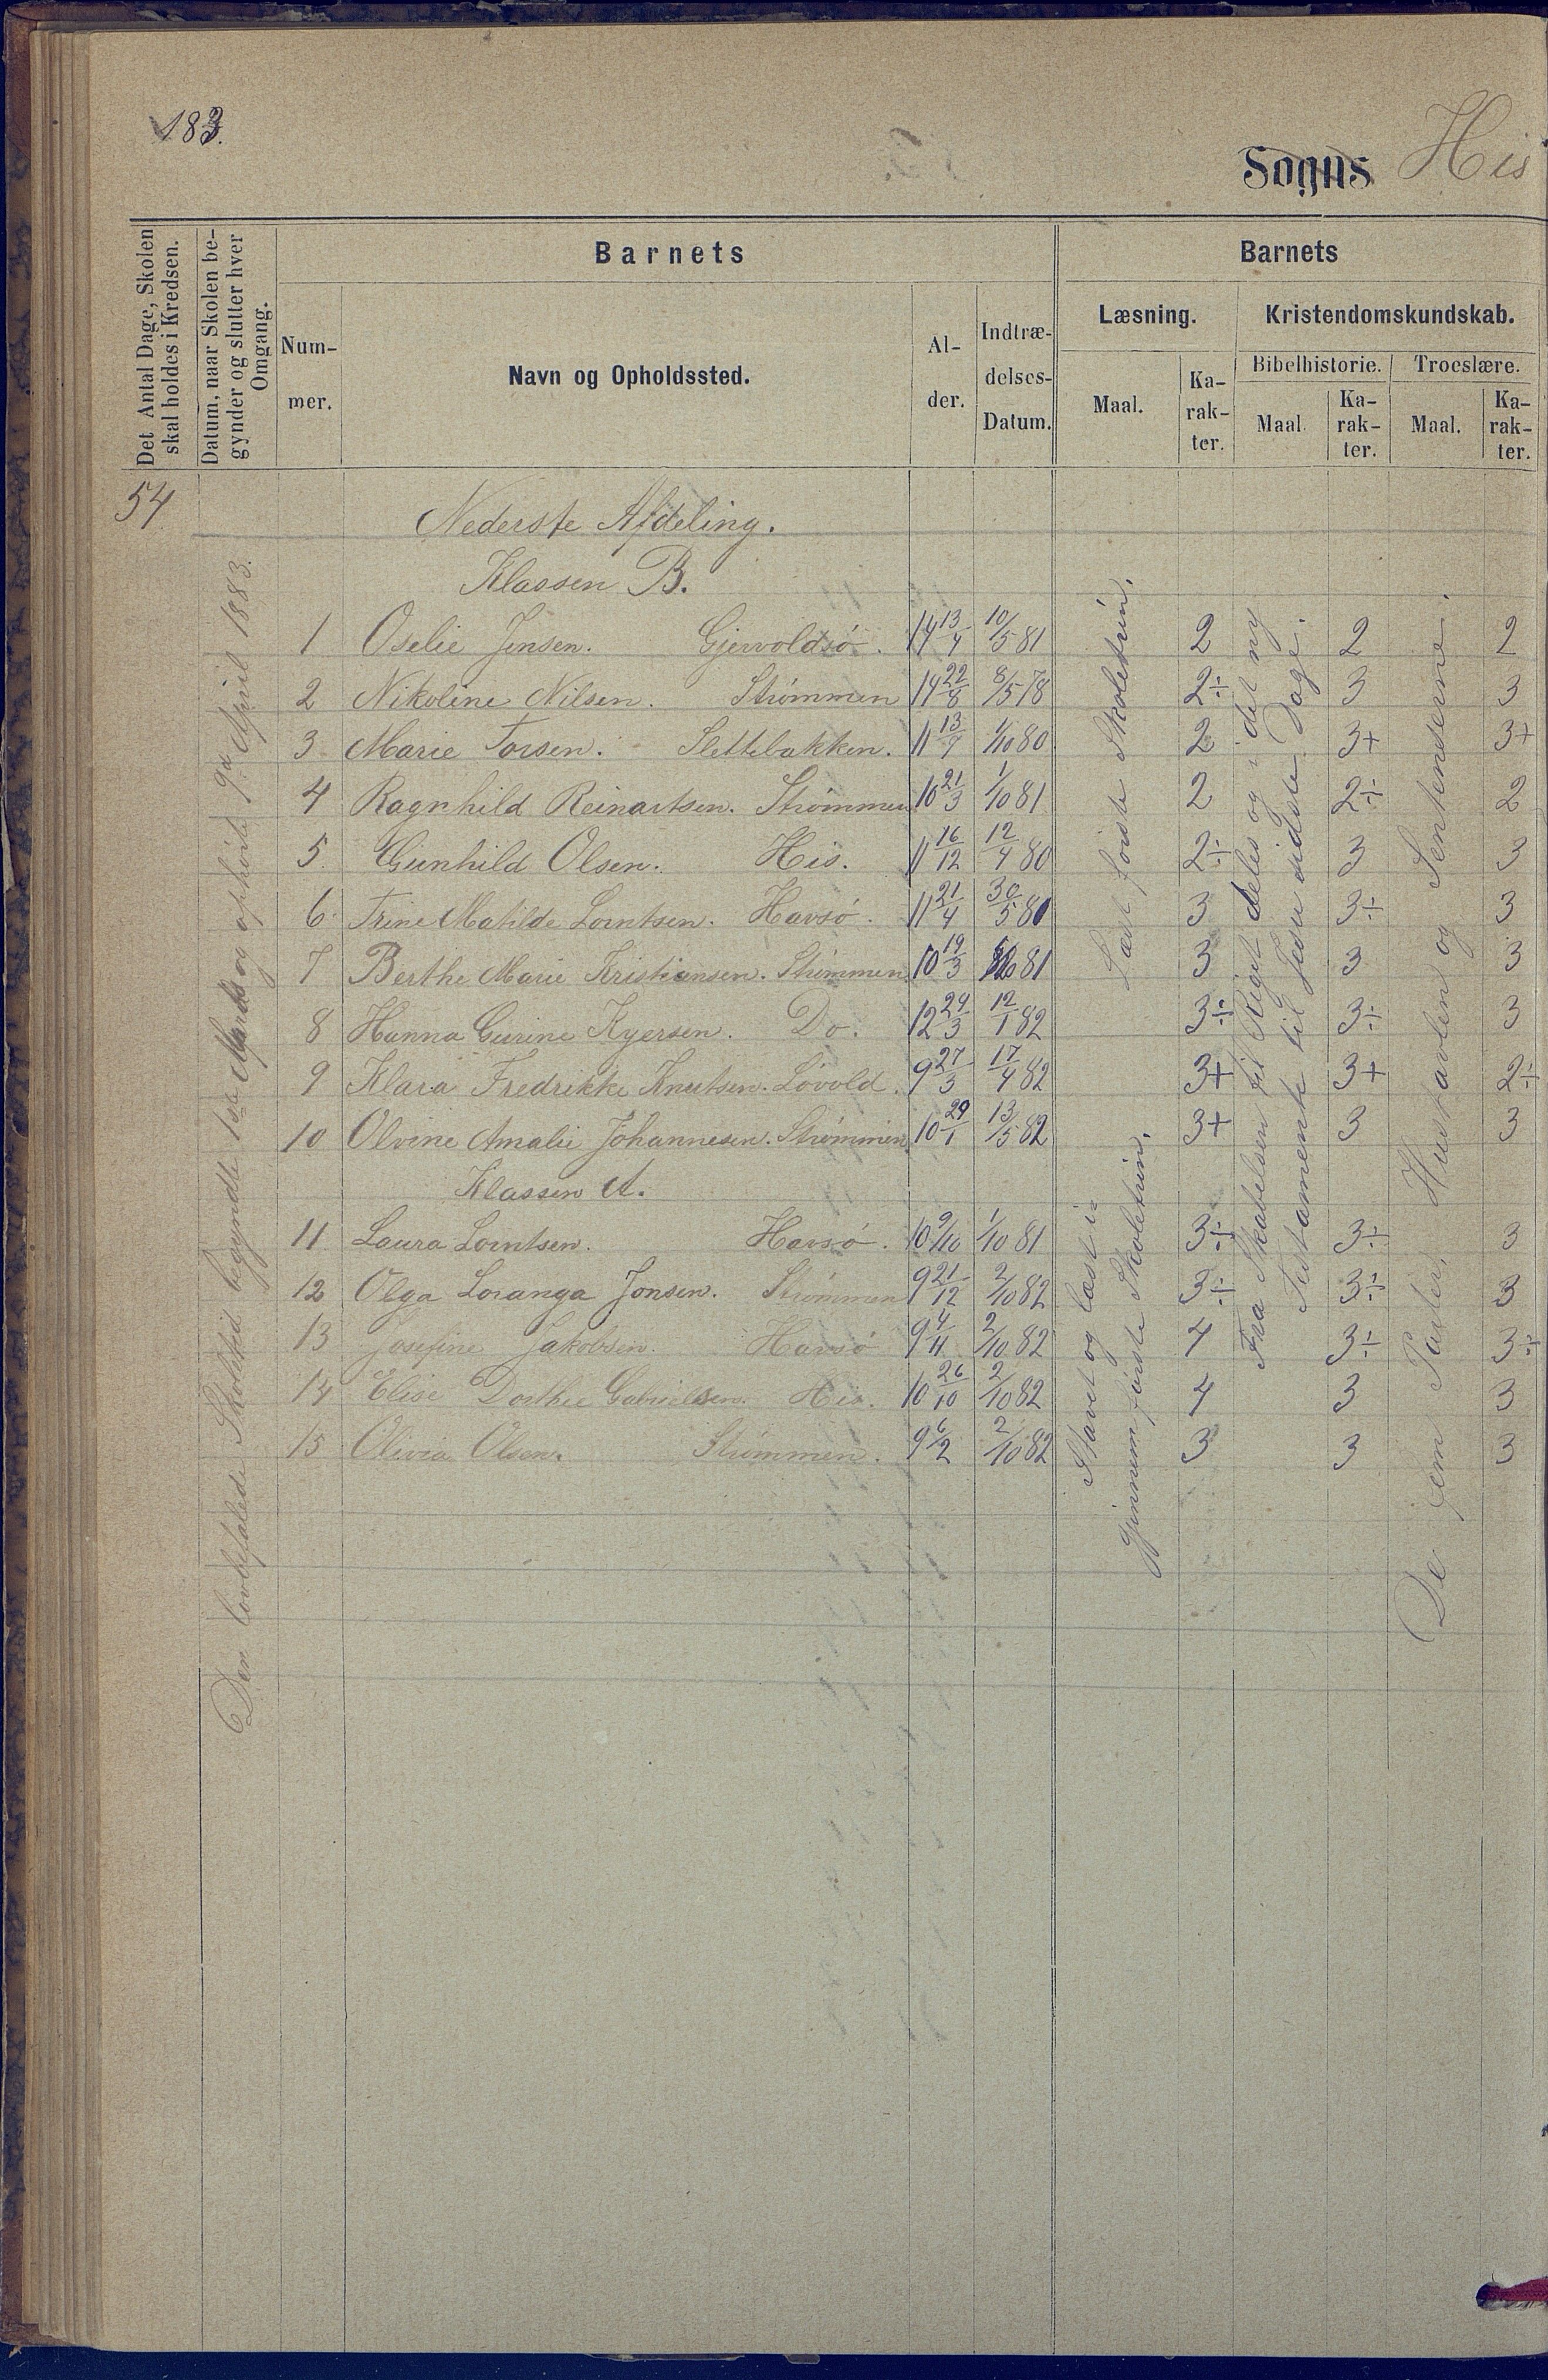 183.
Sogns His
Det Antal Dage, Skolen skal holdes i Kredsen.
Datum, naar Skolen begynder og slutter hver Omgang.
Barnets
Barnets
Læsning. Kristendomskundskab.
Bibelhistorie. Troeslære.
Num-mer. Navn og Opholdssted. Al-der. Indtræ-delses-Datum. Maal. Ka-rak-ter. Maal. Ka-rak-ter. Maal. Ka-rak-ter.
54
Nederste Afdeling.
Klassen B.
1 Oselie Jensen. Gjervoldsø. 14 13/4 10/5 81 2 2 2
2 Nikoline Nilsen. Strømmen 14 22/8 8/5 78 2÷ 3 3
3 Marie Torsen. Slettebakken. 11 13/7 1/10 80 2 3+ 3+
4 Ragnhild Reinartsen. Strømmen 10 21/3 1/10 81 2 2÷ 2
5. Gunhild Olsen. His. 11 16/12 12/4 80 2÷ 3 3
6. Trine Matilde Lorntsen. Havsø. 11 21/4 30/5 80 3 3÷ 3
7 Berthe Marie Kristiansen. Strømmen 10 19/3 81 3 3 3
8 Hanna Gurine Kyersen. Do. 12 24/3 12/1 82 3÷ 3÷ 3
9 Klara Fredrikke Knutsen. Løvold. 9 27/3 17/4 82 3+ 3+ 2÷
10 Olvine Amalie Johannesen. Strømmen 10 29/1 13/5 82 3+ 3 3
Klassen A.
11 Laura Lorntsen. Havsø. 10 9/10 1/10 81 3÷ 3÷ 3
12 Olga Loranga Jonsen. Strømmen 9 21/12 2/10 82 3÷ 3÷ 3
13 Josefine Jakobsen. Havsø 9 4/11 2/10 82 4 3÷ 3÷
14 Elise Dorthee Gabrielsen. His. 10 26/10 2/10 82 4 3 3
15 Olivia Olsen. Strømmen. 9 6/2 2/10 82 3 3 3
Den lovbefalede Skoletid begyndte 1ste Marts og ophørte 9de April 1883.
Læst første Skoletrin.
Stavet og læst i
gjennem første Skoletrin.
Fra Skabelsen til Riget deles og i det ny
Testamente til Jesu sidste Dage.
De fem Parter, Hustavlen og Sentenserne.